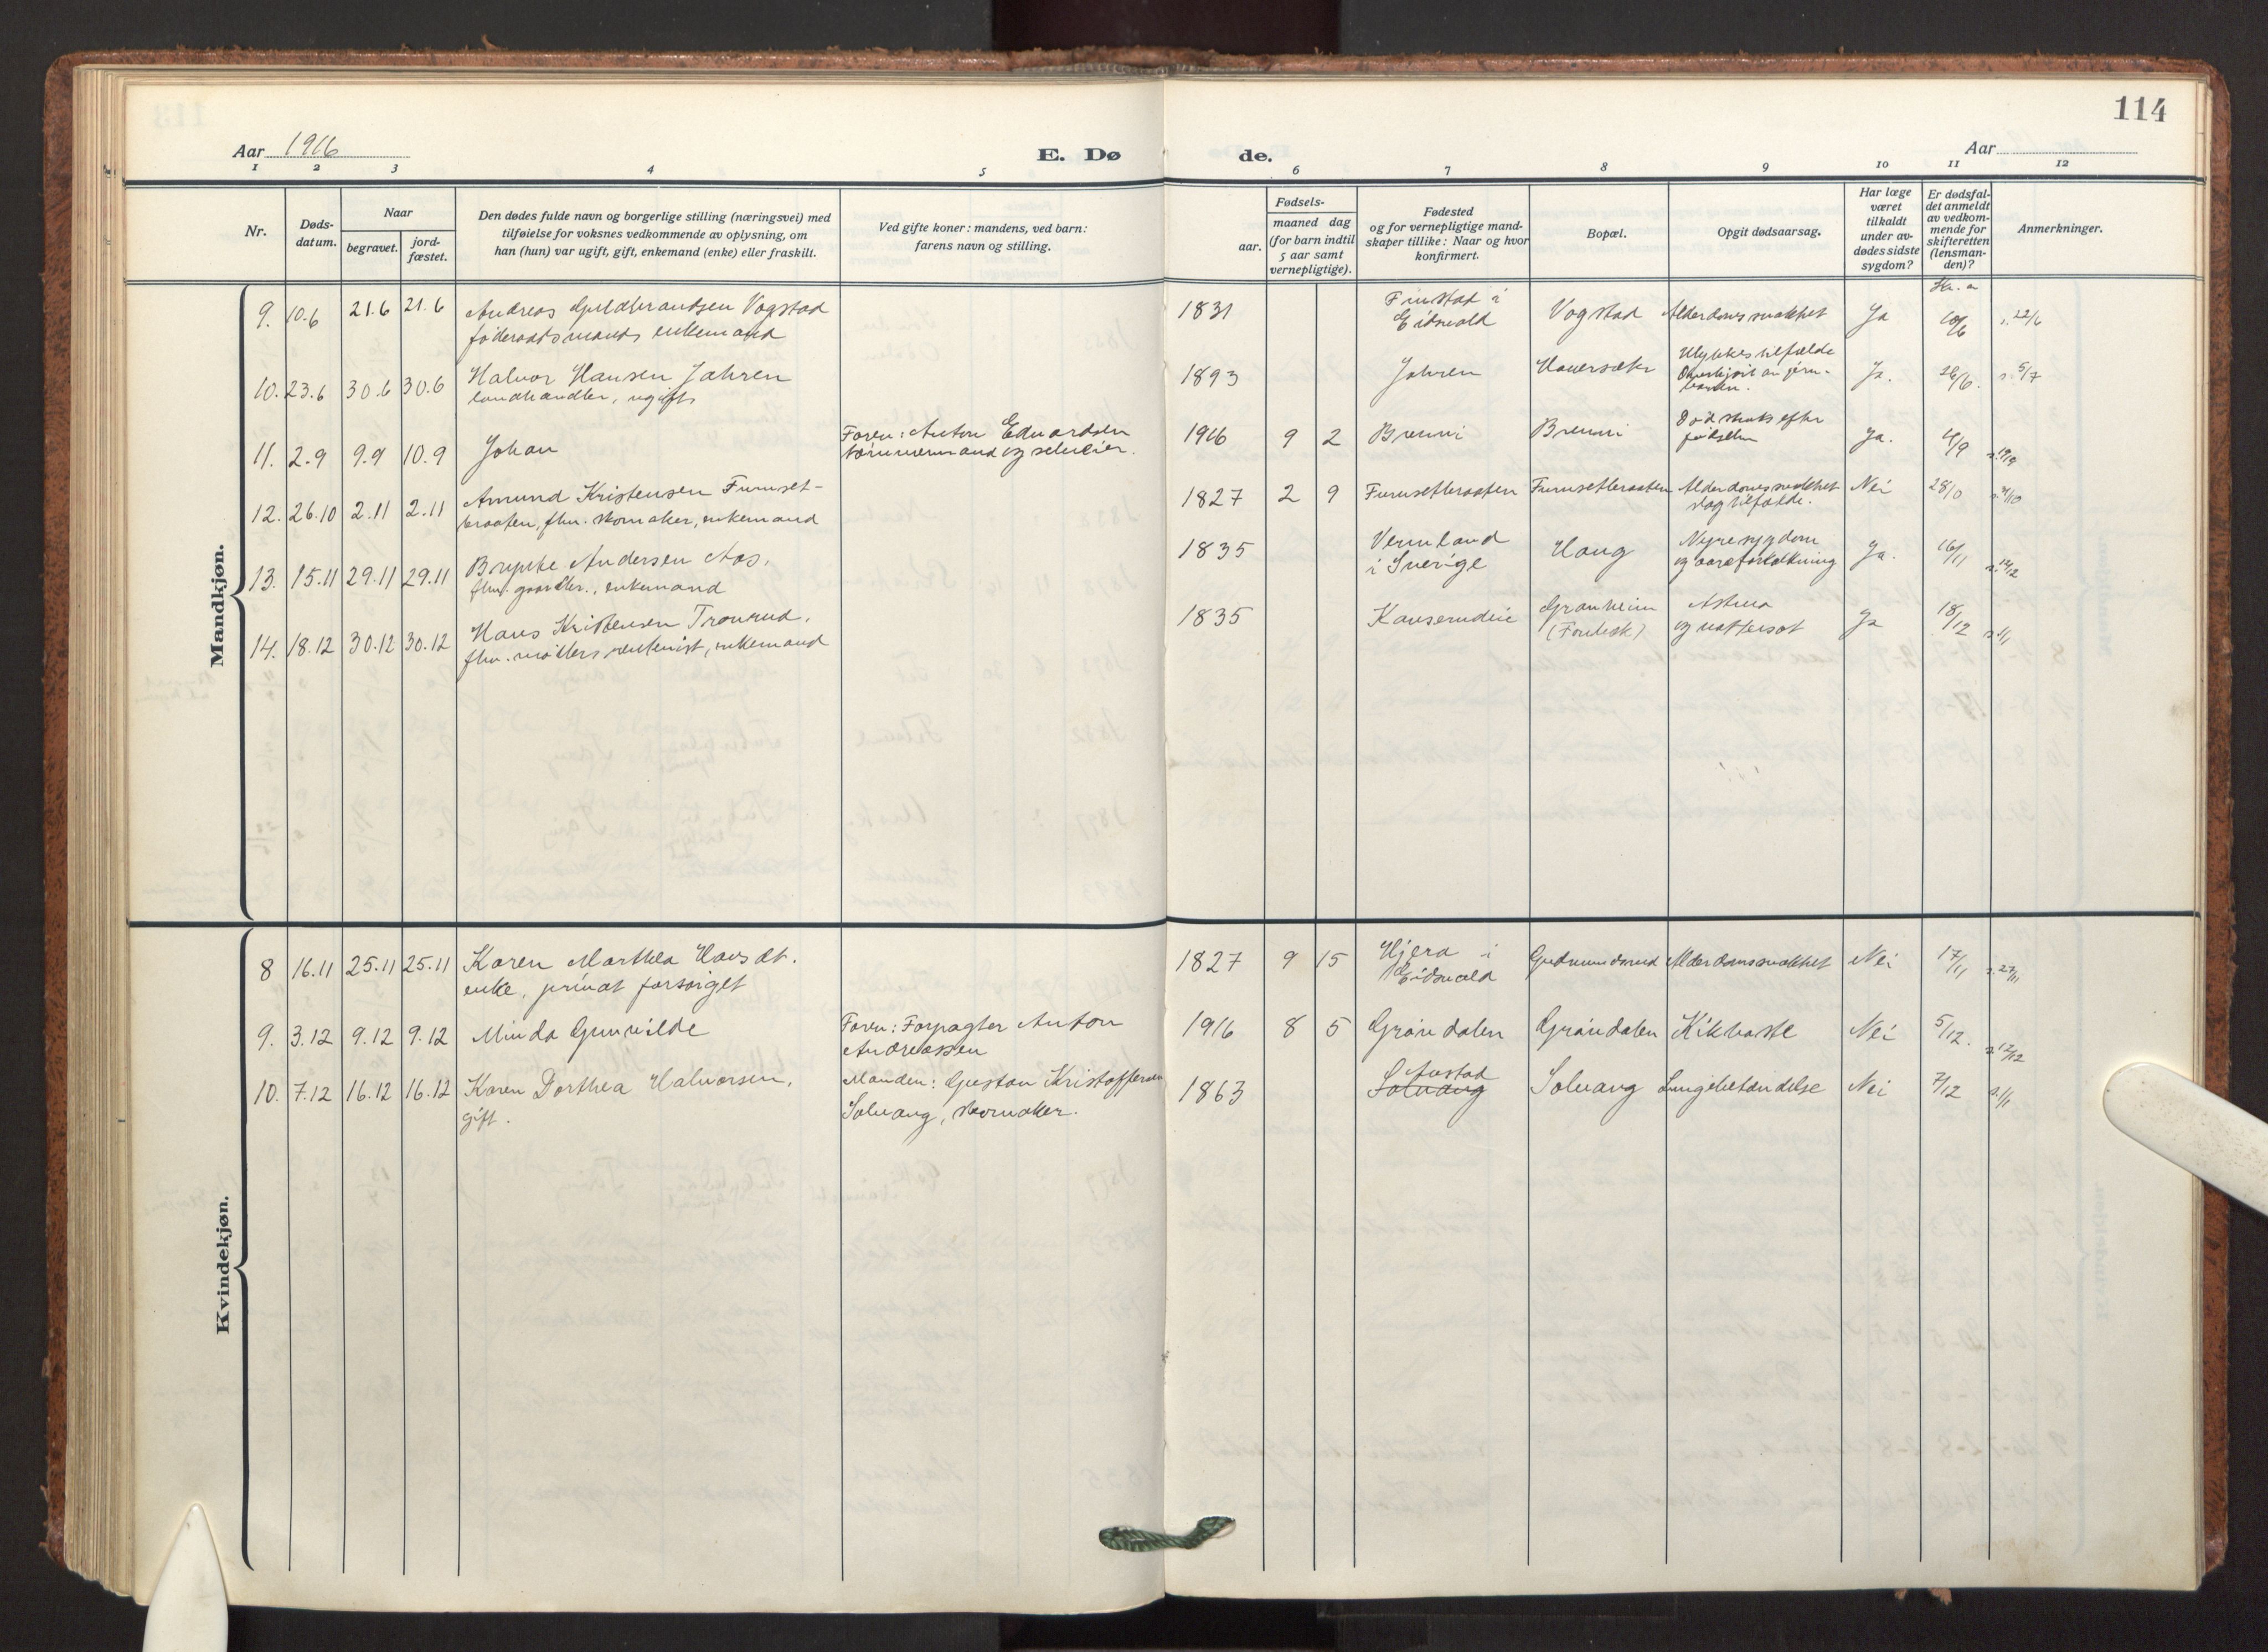 114
Aar 1916
E. Dø
de.
Aar
1 2 3 4 5 6 7 8 9 10 11 12
Nr.
Døds-
datum.
Naar
begravet.
jord-
fæstet.
Den dødes fulde navn og borgerlige stilling (næringsvei) med
tilføielse for voksnes vedkommende av oplysning, om
han (hun) var ugift, gift, enkemand (enke) eller fraskilt.
Ved gifte koner: mandens, ved barn:
farens navn og stilling.
aar.
Fødsels-
maaned dag
(for barn indtil
5 aar samt
vernepligtige).
Fødested
og for vernepligtige mand-
skaper tillike: Naar og hvor
konfirmert.
Bopæl.
Opgit dødsaarsag.
Har læge
været
tilkaldt
under av-
dødes sidste
sygdom?
Er dødsfal-
det anmeldt
av vedkom-
mende for
skifteretten
(lensman-
den)?
Anmerkninger.
Mandkjøn.
9. 10.6 21.6 21.6 Andreas Guldbrandsen Vogstad
føderaadsmand, enkemand
1831 Finstad i
Eidsvold
Vogstad Alderdomssvakhet Ja s. 22/6
10. 23.6 30.6 30.6 Halvor Hansen Jahren
landhandler, ugift
1893 Jahren Haversæter Ulykkestilfælde
Overkjørt av jern-
banen.
Ja. 26/6. s. 5/7
11. 2.9 9.9 10.9 Johan
Faren: Anton Edvardsen
tømmermand og selveier.
1916 9 2 Brenni Brenni Død straks efter
fødselen
Ja. 4/9
12. 26.10 2.11 2.11 Amund Kristensen Furuset-
braaten, fhv. skomaker, enkemand
1827 2 9 Furusetbraaten Furusetbraaten Alderdomssvakhet
slagtilfælde.
Nei 28/10
13. 15.11 29.11 29.11 Brynke Andersen Aas,
fhv. gaardbr., enkemand
1835 Vermland
i Sverige
Haug Nyresygdom
og aareforkalkning
Ja. 16/11 s. 14/12
14. 18.12 30.12 30.12 Hans Kristensen Tronrud,
fhv. møllers enkemand
1835 Kauserudeie Granheim
(Fonbæk)
Astma
og vattersot
Ja 18/12 s. 1/1
Kvindekjøn.
8 16.11 25.11 25.11 Karen Marthea Hansdt.
enke, privat forsørget
1827 9 15 Hjera i
Eidsvold
Gudmundsrud Alderdomssvakhet Nei 17/11 s. 27/11
9. 3.12 9.12 9.12 Minda Gunvilde
Faren: Forpagter Anton
Andreassen
1916 8 5 Grøndalen Grøndalen Kikhoste Nei 5/12. s. 12/12
10. 7.12 16.12 16.12 Karen Dorthea Halvorsen,
gift.
Manden: Gustav Kristoffersen
Solvang, skomaker.
1863 Austad
Solvang
Solvang Lungebetændelse Nei 7/12 s. 1/1